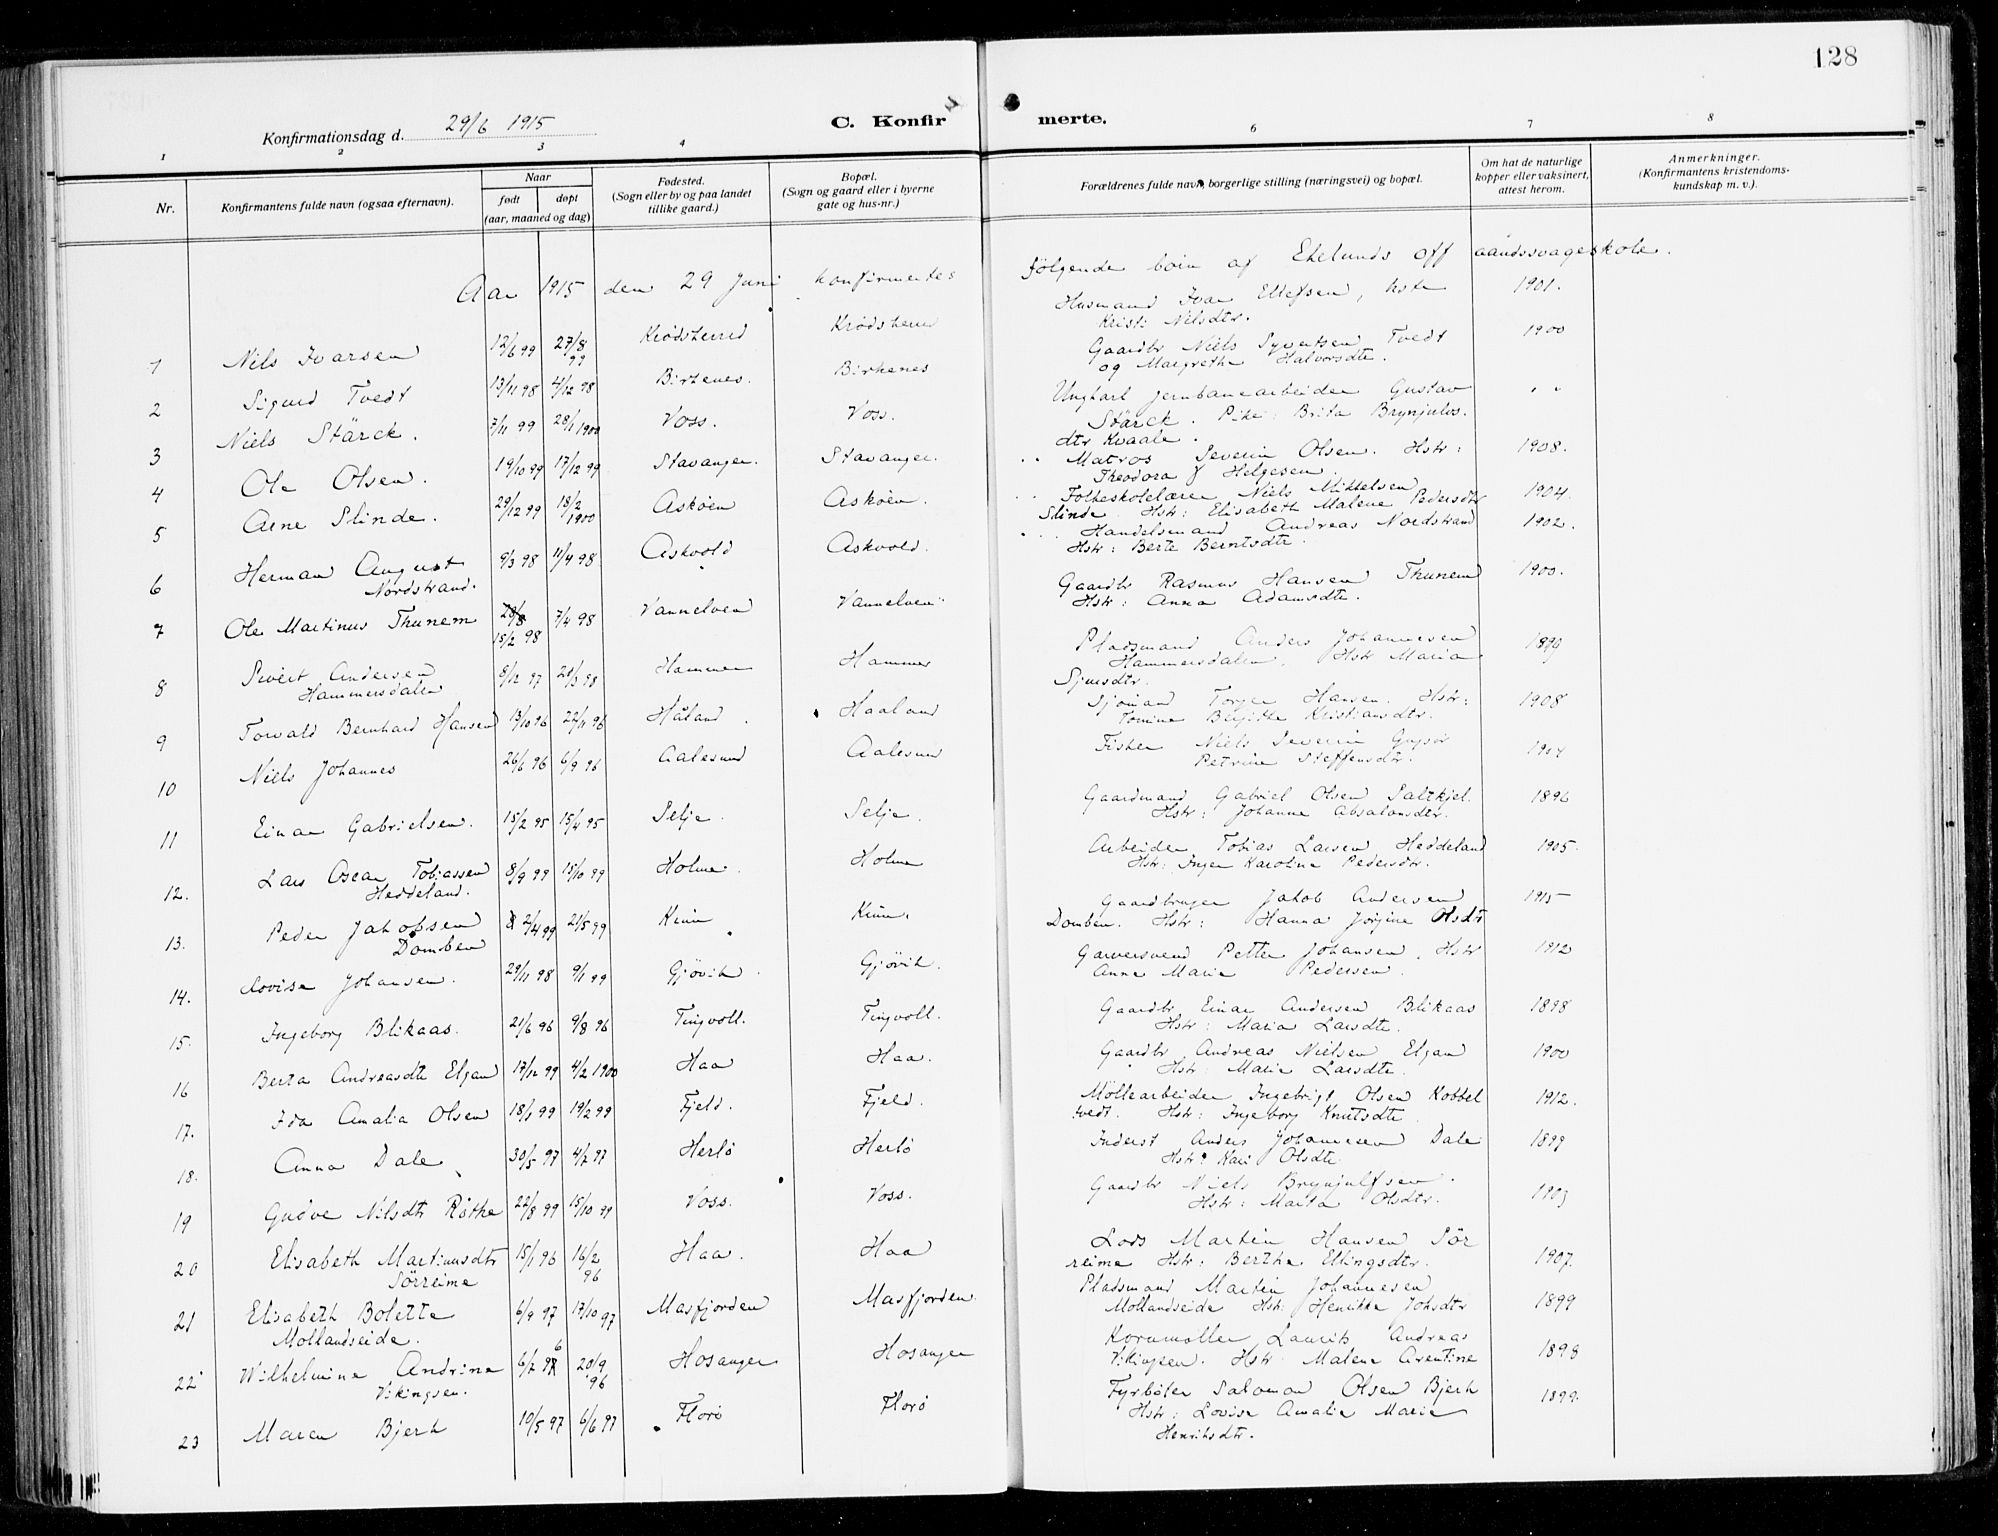 128
Konfirmationsdag d. 29/6 1915
C. Konfirmerte.
1 2 3 4 6 7 8
Nr.
Konfirmantens fulde navn (ogsaa efternavn).
Naar
født døpt
(aar, maaned og dag)
Fødested.
(Sogn eller by og paa landet
tillike gaard.)
Bopæl.
(Sogn og gaard eller i byerne
gate og hus-nr.)
Forældrenes fulde navn, borgerlige stilling (næringsvei) og bopæl.
Om hat de naturlige
kopper eller vaksinert,
attest herom.
Anmerkninger.
(Konfirmantens kristendoms-
kundskap m. v.).
Aar 1915 den 29 Juni konfirmertes følgende born af Ekelunds off aandssvageskole.
1 Nils Ivarsen 12/6 99 27/8 99 Krødsherred Krødsherred Husmand Ivar Ellefsen, hstr 1901.
Kristi Nilsdtr.
2 Sigurd Tvedt 13/11 98 4/12 98 Birkenes. Birkenes Gaardbr Niels Syvertsen Tvedt 1900
og Margrethe Halvorsdtr.
3 Niels Stärck. 7/11 99 28/1 1900 Voss. Voss. Ungkarl jernbanearbeider Gustav " "
Stärck. Pike: Brita Brynjulvs.
dtr Kvaale.
4 Ole Olsen. 19/10 99 17/12 99 Stavanger. Stavanger. Matros Severin Olsen. Hstr: 1908.
Theodora J Helgesen.
5 Arne Slinde. 29/12 99 18/2 1900 Askøen Askøen. Folkeskolelærer Niels Mikkelsen 1904.
Slinde. Hstr: Elisabeth Malene Pedersdtr
6 Herman August 9/3 98 11/4 98 Askvold Askvold. Handelsmand Andreas Nordstrand 1902.
Nordstrand. Hstr: Berte Berntsdtr.
7 Ole Martinus Thunem 15/2 98 7/4 98 Vannelven Vannelven Gaardbr Rasmus Hansen Thunem 1900.
Hstr: Anna Adamsdtr.
8 Sivert Andersen 8/12 97 20/3 98 Hammer Hammer Pladsmand Anders Johannesen 1899
Hammersdalen Hammersdalen. Hstr Maria
Sjursdtr.
9 Torvald Bernhard Hansen 13/10 96 22/11 96 Håland. Haaland Sjömand Torger Hansen. Hstr: 1908
Tomine Birgitte Kristiansdtr.
10 Niels Johannes 26/6 96 6/9 96 Aalesund Aalesund Fisker Niels Severin
Petrine Steffensdtr.
11 Einar Gabrielsen. 15/2 95 15/4 95 Selje. Selje. Gaardmand Gabriel Olsen Saltkjel. 1896
Hstr: Johanne Absalonsdtr.
12. Lars Oscar Tobiassen 8/9 99 15/10 99 Holme. Holme Arbeider Tobias Larsen Heddeland 1905.
Heddeland. Hstr: Inger Karoline Pedersdtr.
13. Peder Jakobsen 2/4 99 21/5 99 Kinn Kinn. Gaardbruger Jakob Andersen 1915
Domben Domben. Hstr: Hanna Jorgine Olsdtr
14. Lovise Johansen. 29/11 98 9/1 99 Gjövik. Gjövik. Garversvend Petter Johansen. Hstr 1912
Anne Marie Pedersen.
15. Ingeborg Blikaas. 21/6 96 9/8 96 Tingvoll. Tingvoll. Gaardbr Einar Andersen Blikaas 1898
Hstr: Maria Larsdtr.
16 Berta Andreasdtr Elgan 17/12 99 4/2 1900 Haa Haa. Gaardbr Andreas Nielsen Elgan 1900
Hstr: Marie Larsdtr.
17. Ida Amalia Olsen 18/1 99 19/2 99 Fjeld. Fjeld. Möllearbeider Ingebrigt Olsen Kobbel 1912.
tvedt. Hstr: Ingeborg Knutsdtr.
18. Anna Dale 30/5 97 4/7 97 Herlö Herlö Inderst Anders Johannesen Dale 1899
Hstr: Kari Olsdtr.
19 Gudve Nilsdtr Röthe 22/8 99 15/10 99 Voss. Voss. Gaardbr Niels Brynjulfsen. 1903
Hstr: Marta Olsdtr.
20 Elisabeth Martinusdtr 15/1 96 16/2 96 Haa. Haa Lods Martin Hansen Sör 1907.
Sörreime reime Hstr: Berthe Ellingsdtr.
21 Elisabeth Bolette 6/9 97 17/10 97 Masfjorden Masfjorden. Pladsmand Martin Johannesen 1899
Mollandseide. Mollandseide Hstr: Henrikke Johsdtr
22 Wilhelmine Andrine 6/7 96 20/9 96 Hosanger Hosanger Kornmøller Laurits Andreas 1898
Vikingsen. Vikingsen. Hstr Malene Arentine
23 Maren Bjerk 10/5 97 6/6 97 Florö Florö Fyrböter Salomon Olsen Bjerk 1899.
Hstr: Lovise Amalie Marie
Henriksdtr.